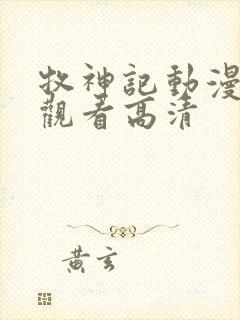 牧神記動漫
觀看高清
黄玄